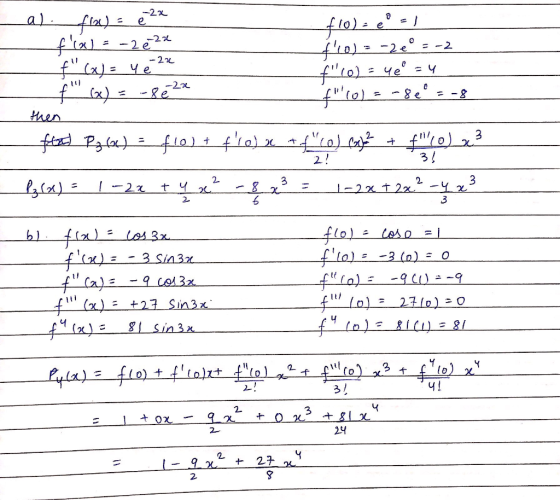 a). f(x) = e^{-2x}    f(0) = e^0 = 1
f'(x) = -2e^{-2x}    f'(0) = -2e^0 = -2
f''(x) = 4e^{-2x}    f''(0) = 4e^0 = 4
f'''(x) = -8e^{-2x}    f'''(0) = -8e^0 = -8
then
P_3(x) = f(0) + f'(0)x + f''(0)/2! (x)^2 + f'''(0)/3! x^3
P_3(x) = 1 - 2x + 4/2 x^2 - 8/6 x^3 = 1 - 2x + 2x^2 - 4/3 x^3
b). f(x) = cos3x    f(0) = cos0 = 1
f'(x) = -3 sin3x    f'(0) = -3(0) = 0
f''(x) = -9 cos3x    f''(0) = -9(1) = -9
f'''(x) = +27 sin3x    f'''(0) = 27(0) = 0
f^4(x) = 81 sin3x    f^4(0) = 81(1) = 81
P_4(x) = f(0) + f'(0)x + f''(0)/2! x^2 + f'''(0)/3! x^3 + f^4(0)/4! x^4
= 1 + 0x - 9/2 x^2 + 0x^3 + 81/24 x^4
= 1 - 9/2 x^2 + 27/8 x^4